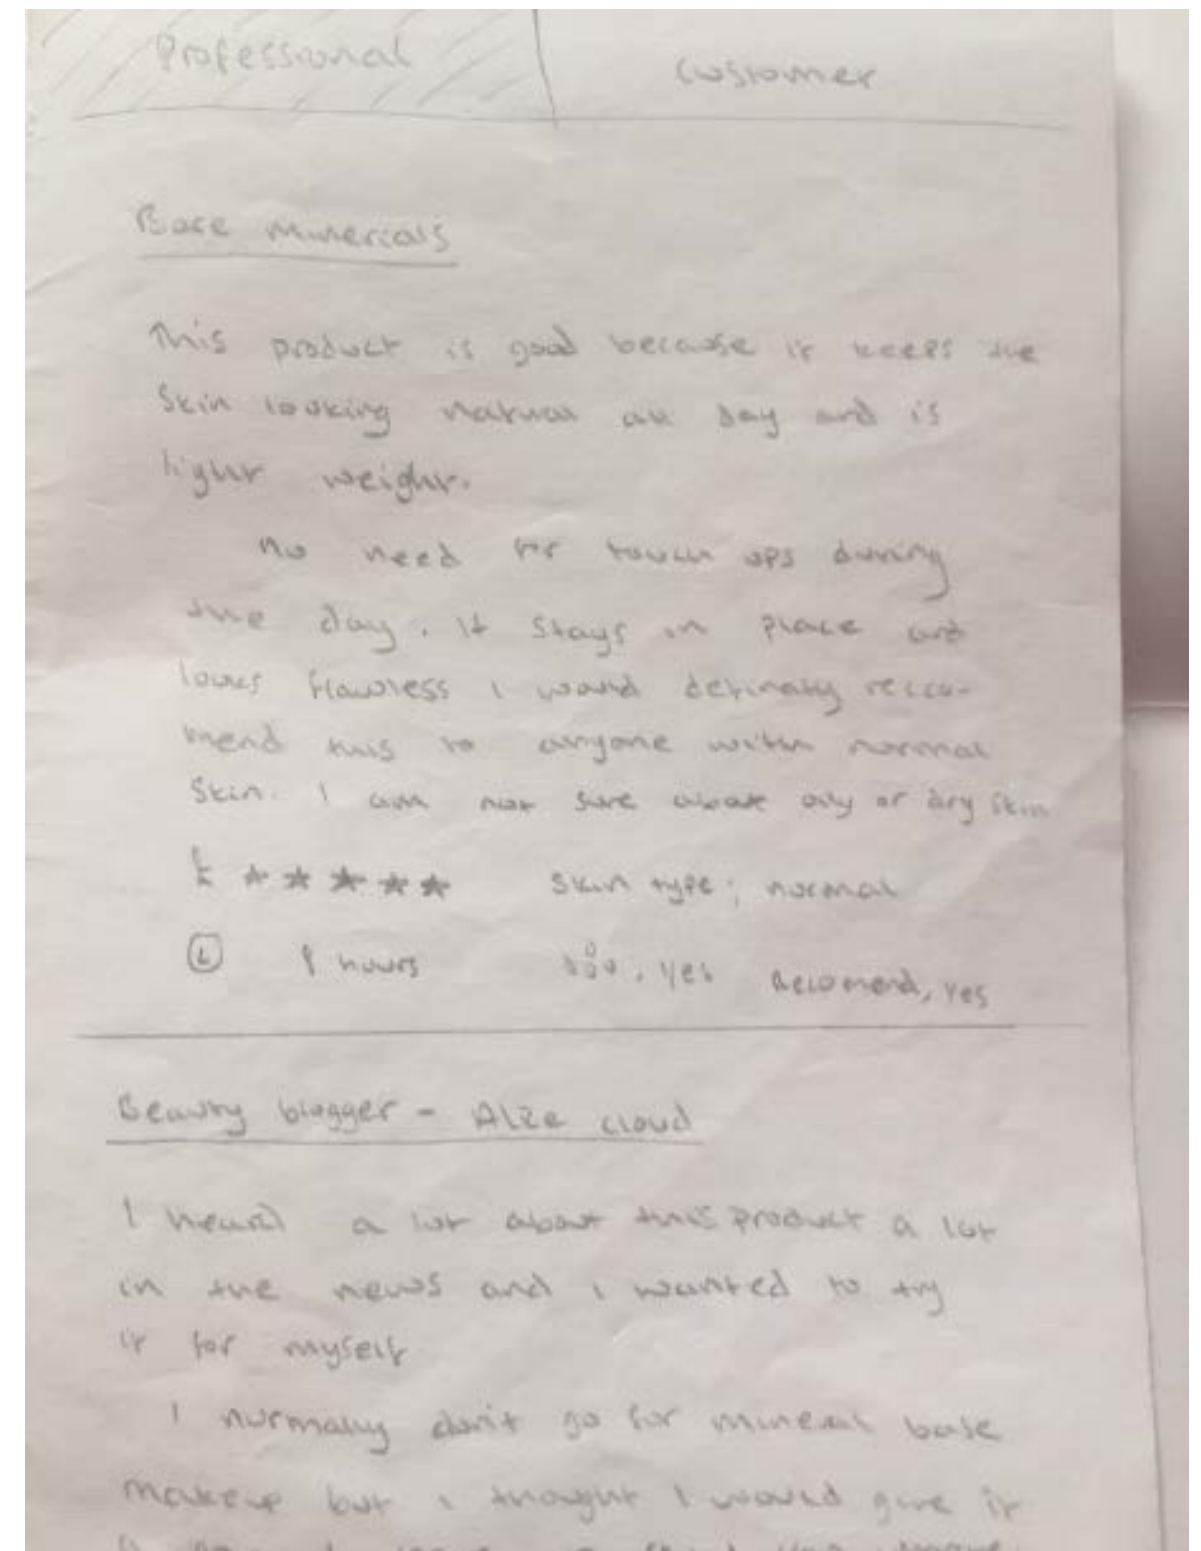 Professional
Customer
Bare Minerials
This product is good because it keeps the
skin looking natural all day and is
light weight.
No need for touch ups during
the day. It stays in place and
looks flawless I would definatly recco-
mend this to anyone with normal
skin. I am not sure about oily or dry skin
skin type; normal
8 hours
yes
Recomend, yes
Beauty blogger - Alze cloud
I heard a lot about this product a lot
in the news and i wanted to try
it for myself
I normaly don't go for mineral base
makeup but i thought I would give it